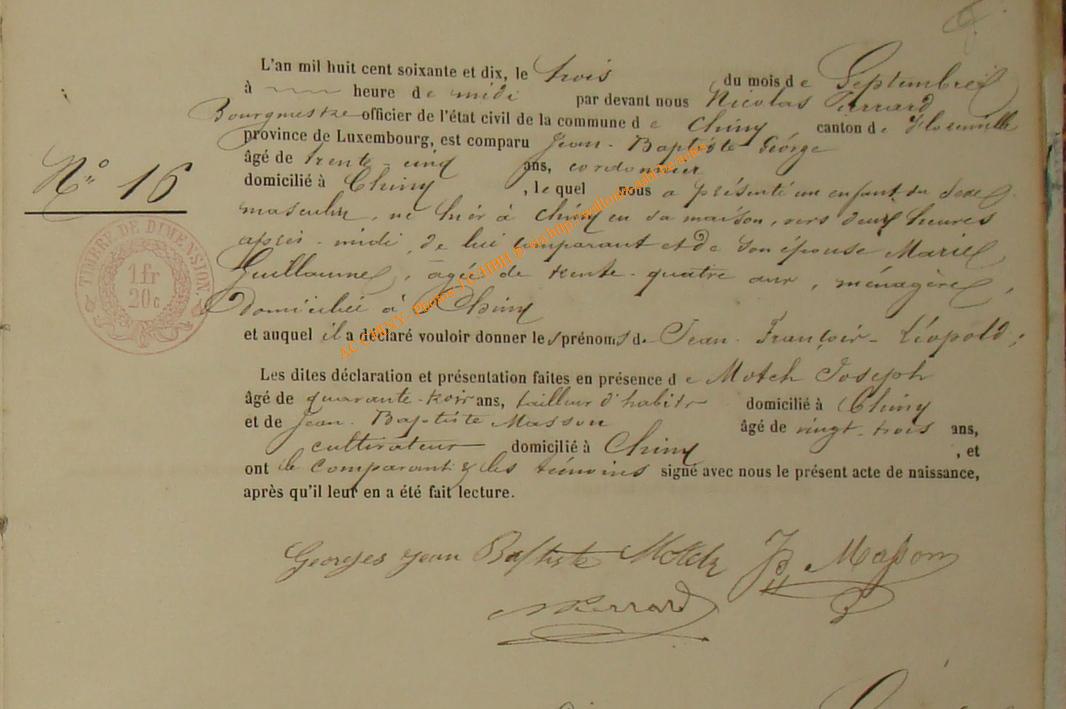 L'an mil huit cent soixante et dix, le trois du mois de Septembre
à heure de midi par devant nous Nicolas Pierrard
Bourgmestre officier de l'état civil de la commune de Chiny canton de Florenville
province de Luxembourg, est comparu Jean-Baptiste George
âgé de trente-cinq ans, cordonnier
domicilié à Chiny, lequel nous a présenté un enfant du sexe
N° 16
masculin, né hier à Chiny en sa maison, vers deux heures
après-midi, de lui comparant et de son épouse Marie
Guillaume, agée de trente-quatre ans, ménagère,
domiciliée à Chiny
TIMBRE DE DIMENSION
1 fr
20 c
et auquel il a déclaré vouloir donner les prénoms de Jean-François-Léopold;
Les dites déclaration et présentation faites en présence de Motch Joseph
âgé de quarante-trois ans, tailleur d'habits domicilié à Chiny
et de Jean-Baptiste Masson âgé de vingt-trois ans,
cultivateur domicilié à Chiny, et
ont le comparant & les témoins signé avec nous le présent acte de naissance,
après qu'il leur en a été fait lecture.
Georges jean Baptiste Motch JB Masson
NPierrard